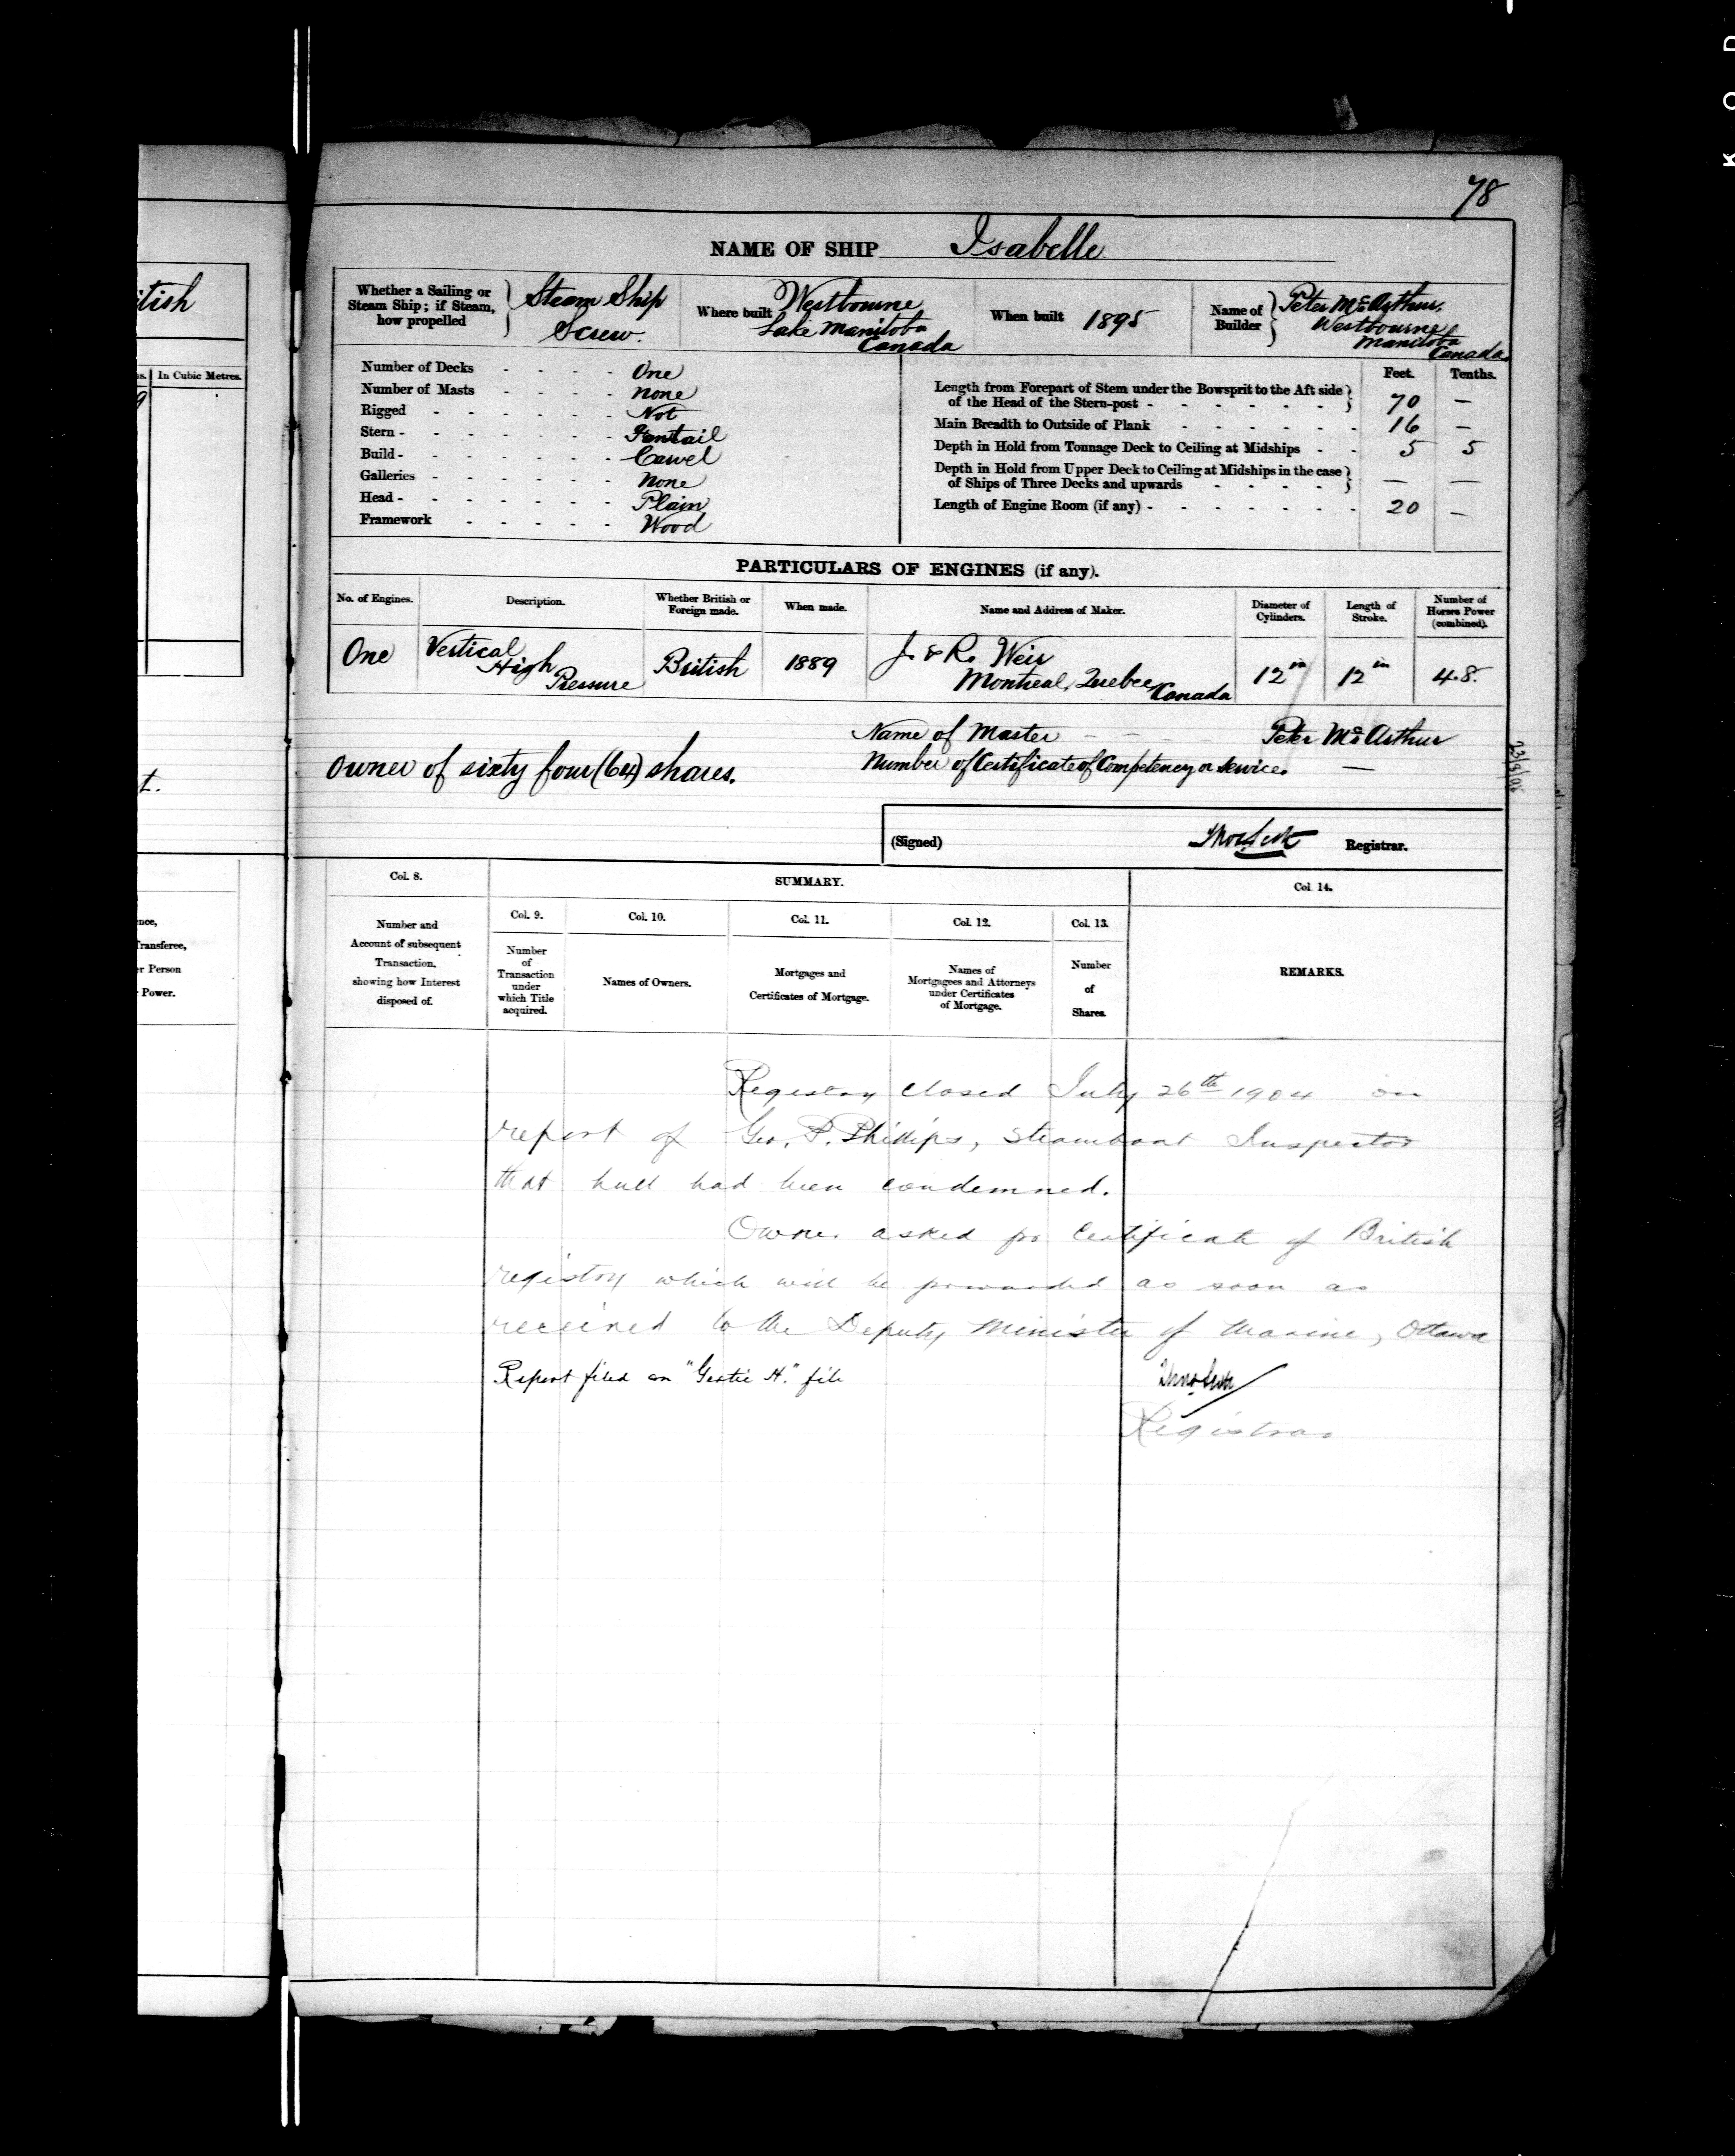 78
NAME OF SHIP Isabelle
Whether a Sailing or Steam Ship; if Steam, how propelled } Steam Ship Screw.
Where built Westbourne Lake Manitoba Canada
When built 1895
Name of Builder } Peter McArthur, Westbourne Manitoba Canada
Number of Decks - - - - One
Number of Masts - - - - None
Rigged - - - - - - Not
Stern - - - - - - Fantail
Build - - - - - - Carvel
Galleries - - - - - None
Head - - - - - - Plain
Framework - - - - - Wood
Feet. Tenths.
Length from Forepart of Stem under the Bowsprit to the Aft side
of the Head of the Stern-post - - - - - - } 70 —
Main Breadth to Outside of Plank - - - - - - 16 —
Depth in Hold from Tonnage Deck to Ceiling at Midships - - 5 5
Depth in Hold from Upper Deck to Ceiling at Midships in the case
of Ships of Three Decks and upwards - - - - } — —
Length of Engine Room (if any) - - - - - - - 20 —
PARTICULARS OF ENGINES (if any).
No. of Engines. Description. Whether British or Foreign made. When made. Name and Address of Maker. Diameter of Cylinders. Length of Stroke. Number of Horses Power (combined).
One Vertical High Pressure British 1889 J. & R. Weir Montreal, Quebec Canada 12 in 12 in 4.8.
Name of Master - - - Peter McArthur
Owner of sixty four (64) shares.
Number of Certificate of Competency or Service. —
(Signed) Registrar.
Col. 8. SUMMARY. Col. 14.
Col. 9. Col. 10. Col. 11. Col. 12. Col. 13.
Number and Account of subsequent Transaction, showing how Interest disposed of.
Number of Transaction under which Title acquired.
Names of Owners.
Mortgages and Certificates of Mortgage.
Names of Mortgagees and Attorneys under Certificates of Mortgage.
Number of Shares.
REMARKS.
Registry closed July 26th 1904 on
report of Geo. P. Phillips, Steamboat Inspector
that hull had been condemned.
Owner asked for Certificate of British
registry which will be forwarded as soon as
received to the Deputy Minister of Marine, Ottawa
Report filed on "Gertie H." file
Registrar
itish
In Cubic Metres.
t.
Transferee,
Person
Power.